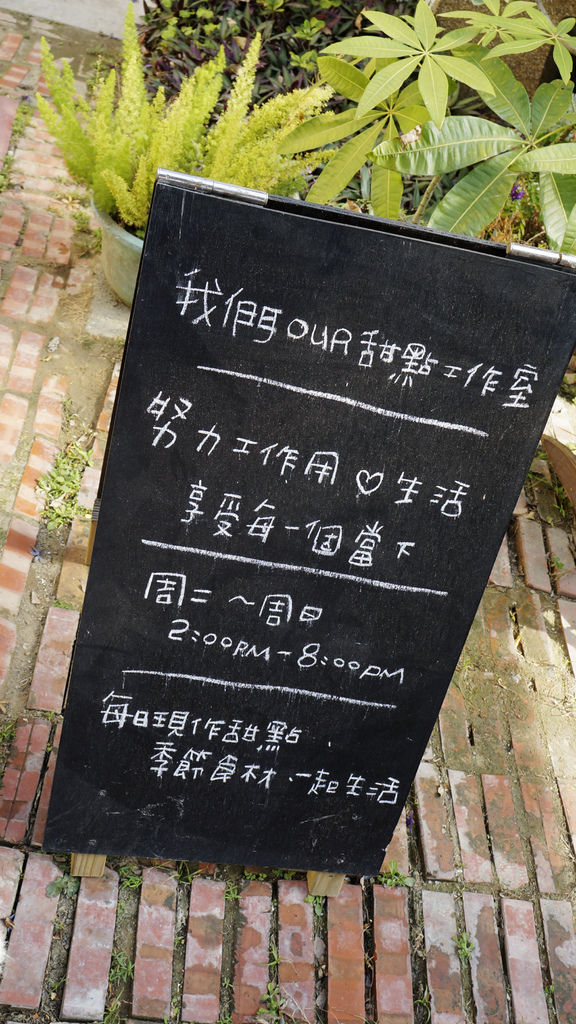 我們OUR甜點工作室
努力工作用♡生活
享受每一個當下
周二～周日
2:00PM-8:00PM
每日現作甜點、
季節食材、一起生活